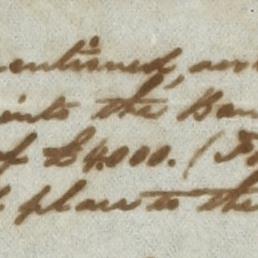 mentioned,
into the Ban
of £4.000. (
place to the